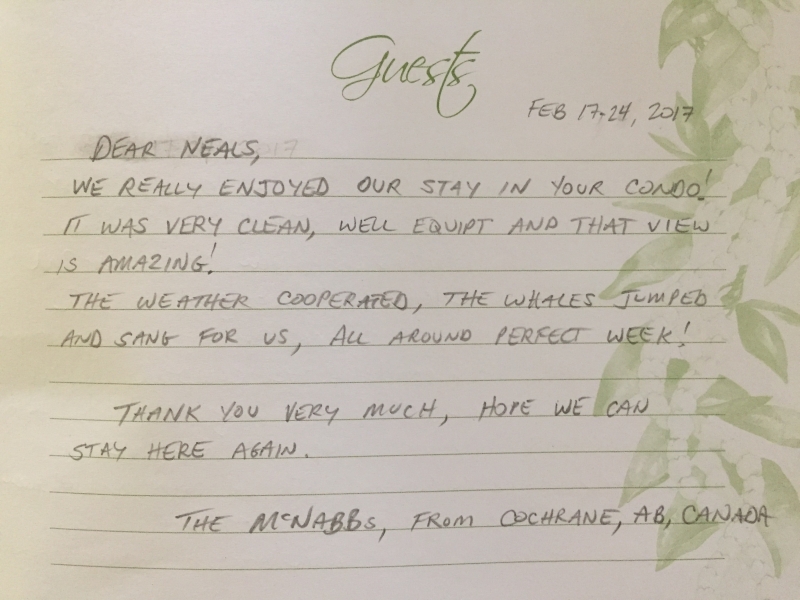 Guests
FEB 17-24, 2017
DEAR NEALS,
WE REALLY ENJOYED OUR STAY IN YOUR CONDO!
IT WAS VERY CLEAN, WELL EQUIPT AND THAT VIEW
IS AMAZING!
THE WEATHER COOPERATED, THE WHALES JUMPED
AND SANG FOR US, ALL AROUND PERFECT WEEK!
THANK YOU VERY MUCH, HOPE WE CAN
STAY HERE AGAIN.
THE McNABBs, FROM COCHRANE, AB, CANADA